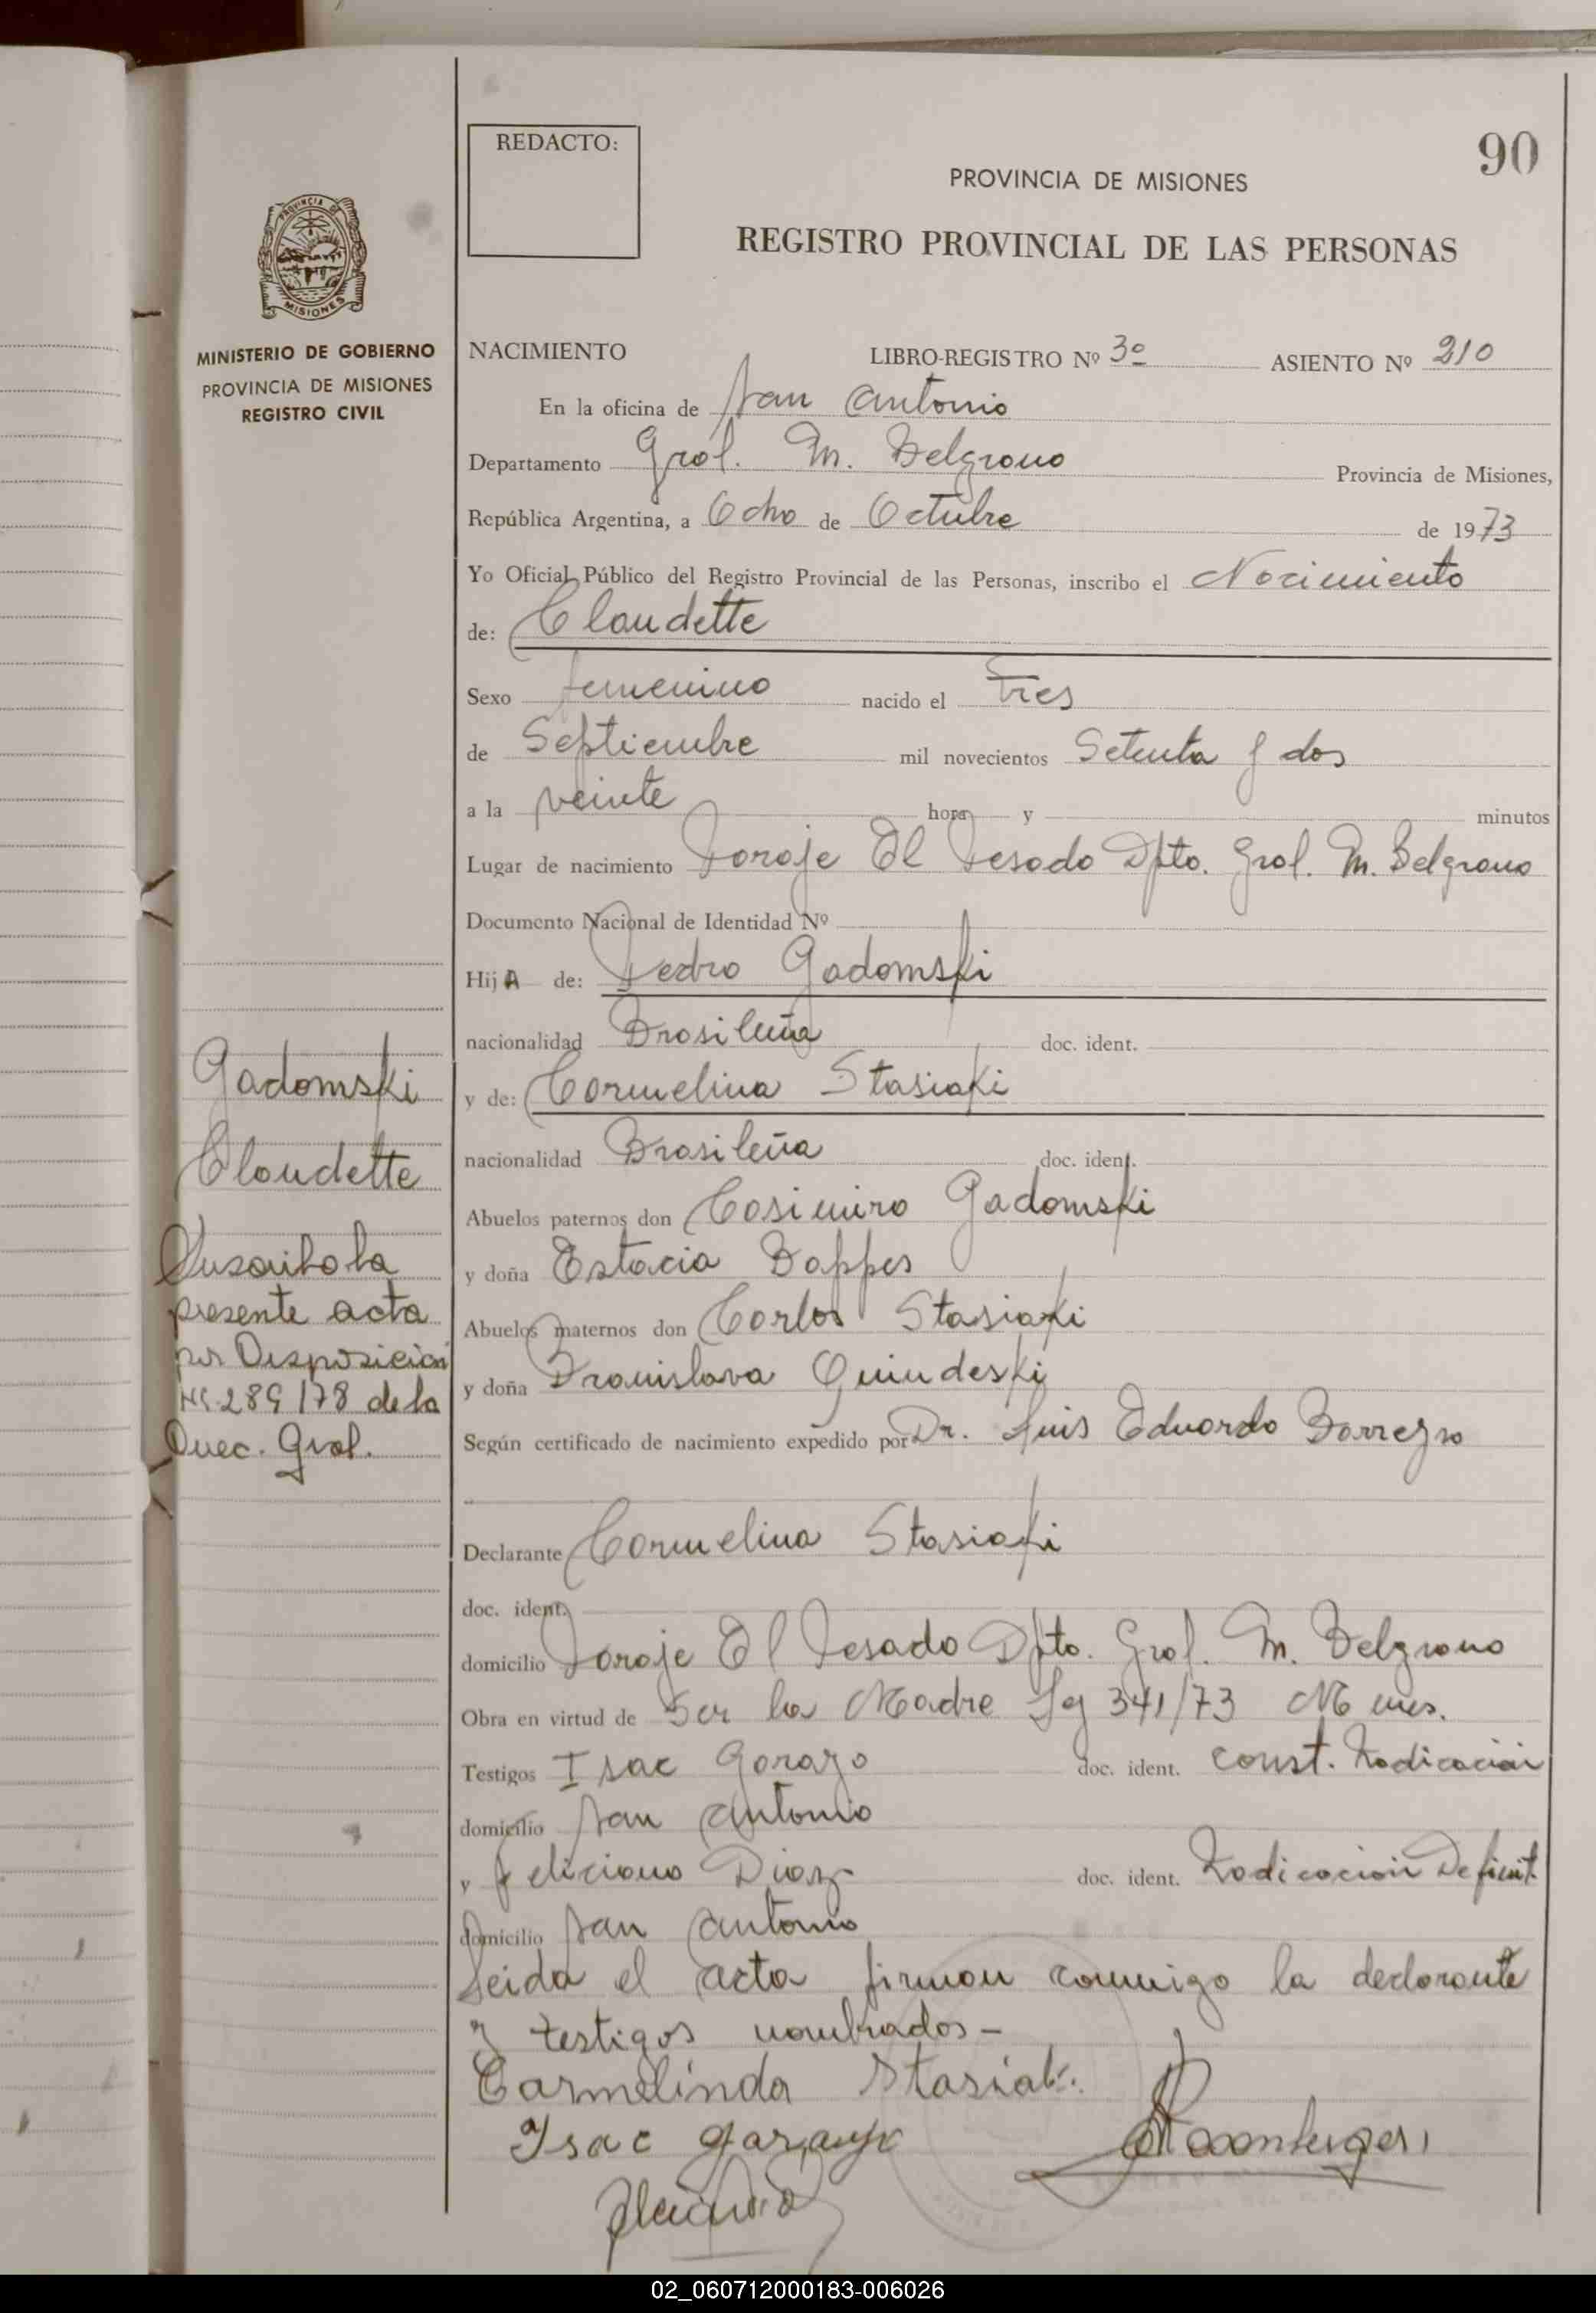 90
REDACTO:
PROVINCIA DE MISIONES
REGISTRO PROVINCIAL DE LAS PERSONAS
PROVINCIA DE
MISIONES
MINISTERIO DE GOBIERNO
PROVINCIA DE MISIONES
REGISTRO CIVIL
NACIMIENTO LIBRO-REGISTRO Nº 3º ASIENTO Nº 210
En la oficina de San Antonio
Departamento Gral. M. Belgrano Provincia de Misiones,
República Argentina, a Ocho de Octubre de 1973
Yo Oficial Público del Registro Provincial de las Personas, inscribo el Nacimiento
de: Claudette
Sexo femenino nacido el Tres
de Septiembre mil novecientos Setenta y dos
a la veinte hora y minutos
Lugar de nacimiento Paraje El Pesado Dpto. Gral. M. Belgrano
Documento Nacional de Identidad Nº
Hija de: Pedro Gadomski
nacionalidad Brasileña doc. ident.
y de: Carmelina Stasiaki
nacionalidad Brasileña doc. ident.
Abuelos paternos don Casimiro Gadomski
y doña Estacia Bappes
Abuelos maternos don Carlos Stasiaki
y doña Branislava Quindeski
Según certificado de nacimiento expedido por Dr. Luis Eduardo Borrego
Declarante Carmelina Stasiaki
doc. ident.
domicilio Paraje El Pesado Dpto. Gral. M. Belgrano
Obra en virtud de Ser la Madre 341/73
Testigos Isac Garazo doc. ident. Const. Radicación
domicilio San Antonio
y Feliciano Diaz doc. ident. Radicacion Definit.
domicilio San Antonio
Leida el acta firman conmigo la declarante
y testigos nombrados -
Carmelinda Stasiak
Isac
Gadomski
Claudette
Suscribo la
presente acta
por Disposición
Nº 289/78 de la
Direc. Gral.
02_060712000183-006026